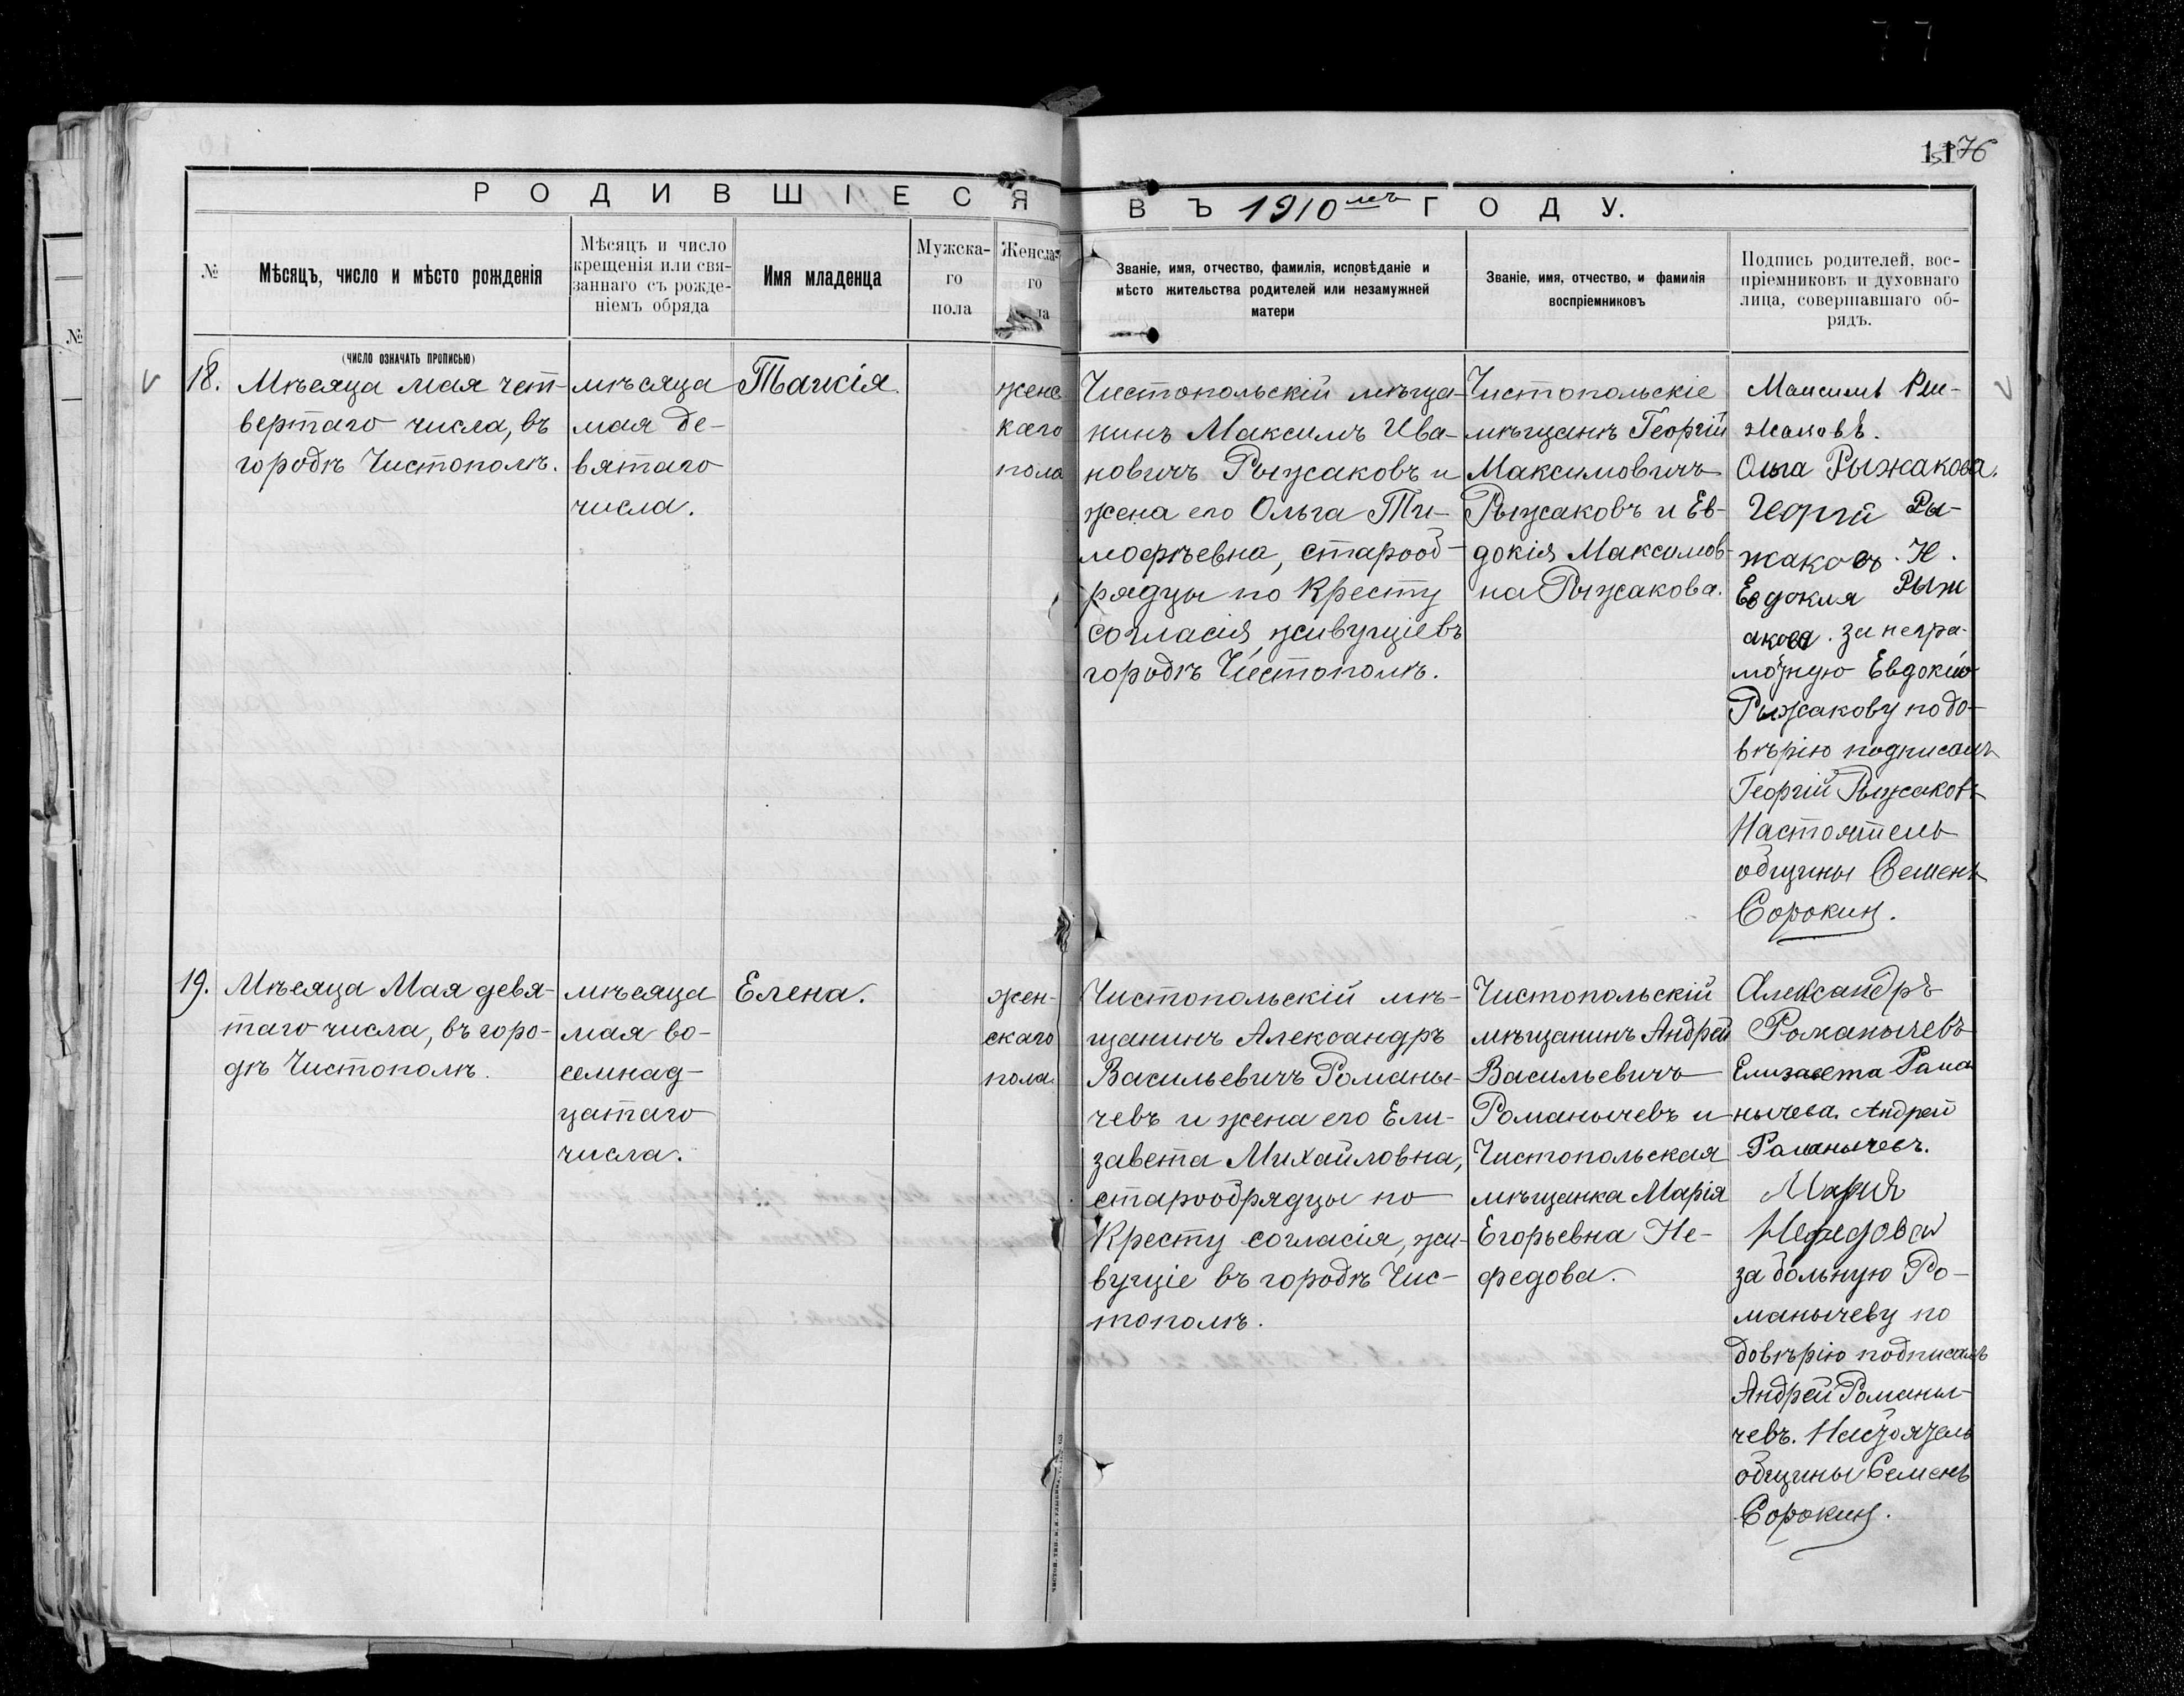 77
11 76
РОДИВШІЕСЯ ВЪ 1910мъ ГОДУ.
№
Мѣсяцъ, число и мѣсто рожденія
Мѣсяцъ и число
крещенія или свя-
заннаго съ рожде-
ніемъ обряда
Имя младенца
Мужска-
го
пола
Женска-
го
Званіе, имя, отчество, фамилія, исповѣданіе и
мѣсто жительства родителей или незамужней
матери
Званіе, имя, отчество, и фамилія
воспріемниковъ
Подпись родителей, вос-
пріемниковъ и духовнаго
лица, совершавшаго об-
рядъ.
№
(число означать прописью)
18.
Мѣсяца мая чет-
вертаго числа, въ
городѣ Чистополѣ.
мѣсяца
мая де-
вятаго
числа.
Таисія
женс
каго
пола
Чистопольскій мѣща-
нинъ Максимъ Ива-
новичъ Рыжаковъ и
жена его Ольга Ти-
мофѣевна, старооб-
рядцы по Кресту
согласія, живущіе въ
городѣ Чистополѣ.
Чистопольскіе
мѣщанѣ Георгій
Максимовичъ
Рыжаковъ и Ев-
докія Максимов-
на Рыжакова.
Максимъ Ры-
жаковъ.
Ольга Рыжакова.
Георгій Ры-
жаковъ. Н.
Евдокия Рыж
акова. за негра-
мотную Евдокію
Рыжакову по до-
вѣрію подписалъ
Георгій Рыжаковъ
Настоятель
общины Семенъ
Сорокин.
19.
Мѣсяца Мая девя-
таго числа, въ горо-
дѣ Чистополѣ.
мѣсяца
мая во-
семнад-
цатаго
числа.
Елена.
жен-
скаго
пола.
Чистопольскій мѣ-
щанинъ Александръ
Васильевичъ Романы-
чевъ и жена его Ели-
завета Михайловна,
старообрядцы по
Кресту согласія, жи-
вущіе въ городѣ Чис-
тополѣ.
Чистопольскій
мѣщанинъ Андрей
Васильевичъ
Романычевъ и
Чистопольская
мѣщанка Марія
Егорьевна Не-
федова.
Александръ
Романычевъ
Елизавета Рама
нычева. Андрей
Романычевъ.
Мария
Нефедова
за больную Ро-
манычеву по
довѣрію подписалъ
Андрей Романы-
чевъ. Настоятель
общины Семенъ
Сорокин.